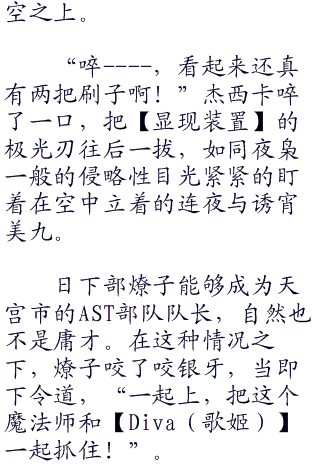 空之上。
“啐----，看起来还真
有两把刷子啊！”杰西卡啐
了一口，把【显现装置】的
极光刃往后一拔，如同夜枭
一般的侵略性目光紧紧的盯
着在空中立着的连夜与诱宵
美九。
日下部燎子能够成为天
宫市的AST部队队长，自然也
不是庸才。在这种情况之
下，燎子咬了咬银牙，当即
下令道，“一起上，把这个
魔法师和【Diva（歌姬）】
一起抓住！”。